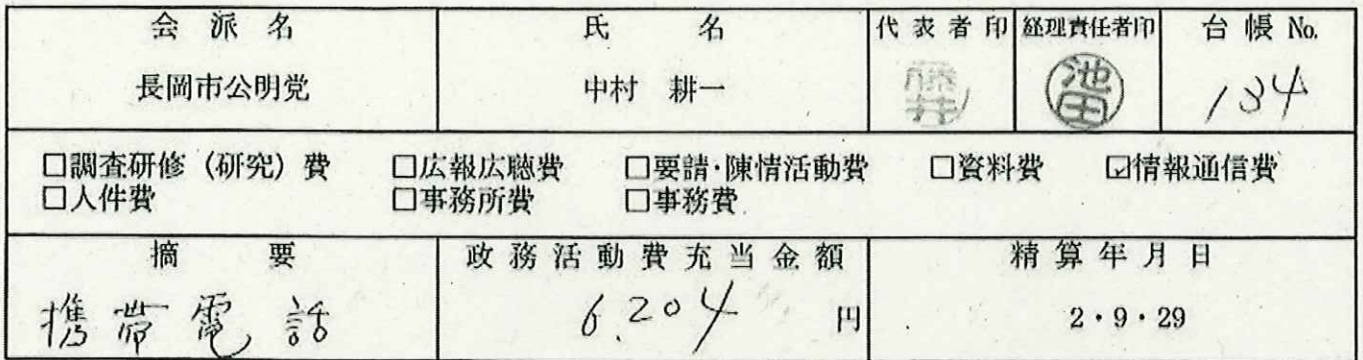 会派名 氏名 代表者印 経理責任者印 台帳No.
長岡市公明党 中村 耕一 藤井 池田 134
□調査研修（研究）費 □広報広聴費 □要請・陳情活動費 □資料費 ☑情報通信費
□人件費 □事務所費 □事務費
摘要 政務活動費充当金額 精算年月日
携帯電話 6,204 円 2・9・29